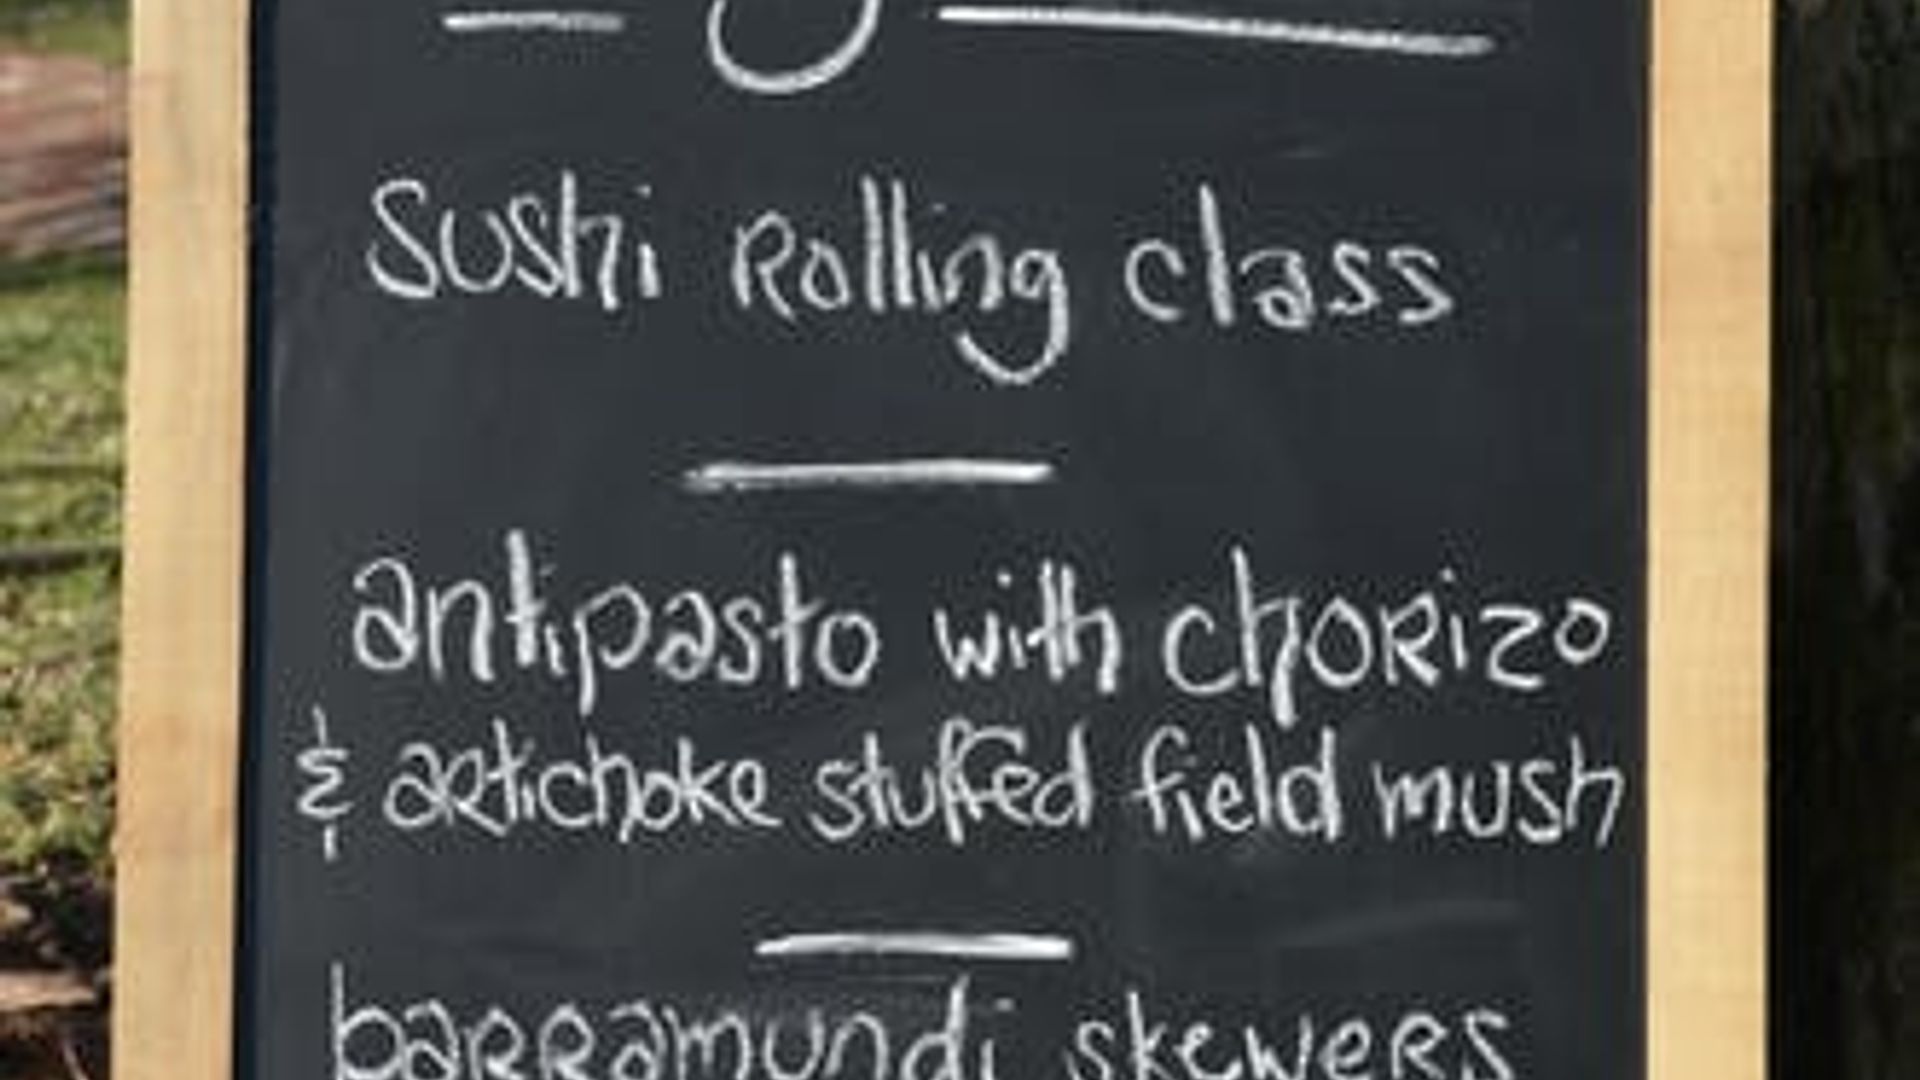 Sushi Rolling class
antipasto with chorizo
& artichoke stuffed field mush
barramundi skewers